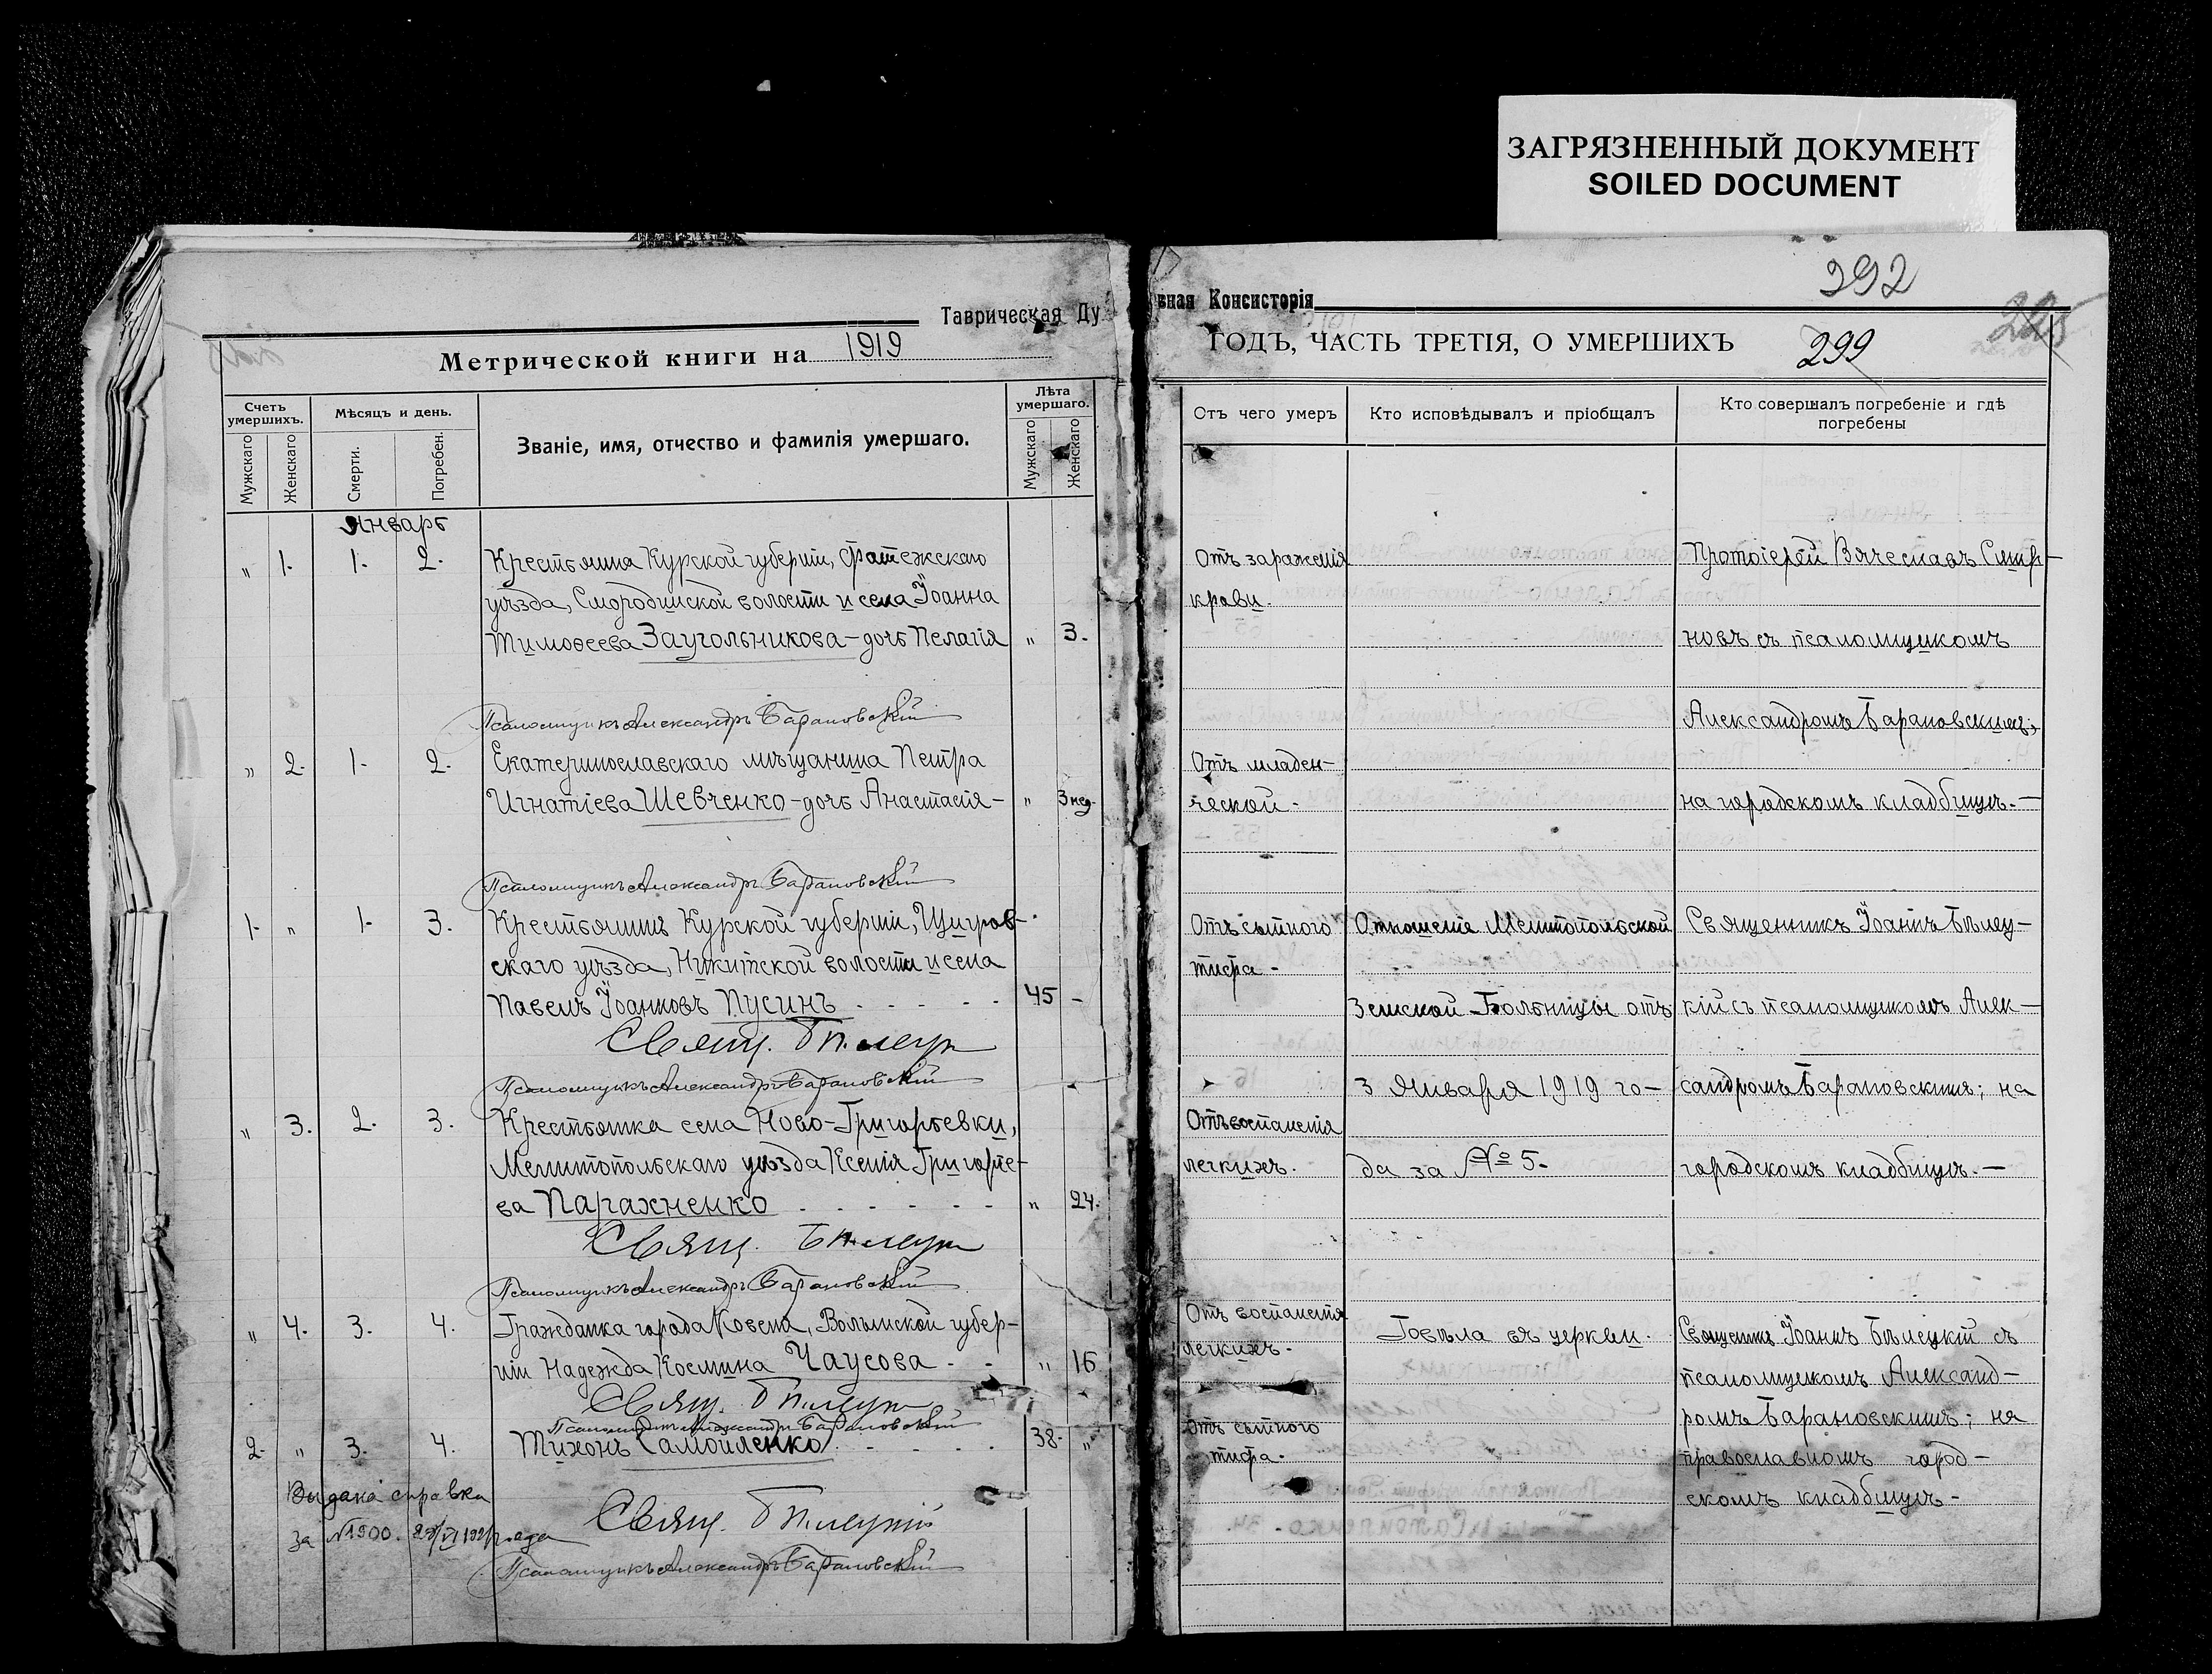 ЗАГРЯЗНЕННЫЙ ДОКУМЕНТ
SOILED DOCUMENT
Таврическая Ду
Метрической книги на 1919
Счетъ умершихъ.
Мѣсяцъ и день.
Званіе, имя, отчество и фамилія умершаго.
Лѣта умершаго.
Мужскаго
Женскаго
Смерти.
Погребен.
Мужскаго
Женскаго
Январь
„ 1. 1. 2. Крестьянина Курской губерніи, Фатежскаго
уѣзда, Смородинской волости и села Іоанна
Тимоѳеева Заугольникова – дочь Пелагія „ 3.
Псаломщикъ Александръ Барановскій
„ 2. 1. 2. Екатеринославскаго мѣщанина Петра
Игнатіева Шевченко – дочь Анастасія – „ 3 нед.
Псаломщикъ Александръ Барановскій
1. „ 1. 3. Крестьянинъ Курской губерніи, Щигров-
скаго уѣзда, Никитской волости и села
Павелъ Іоанновъ Пусинъ . . . . . 45 –
Свящ. Бѣлецк
Псаломщикъ Александръ Барановскій
„ 3. 2. 3. Крестьянка села Ново-Григорьевки,
Мелитопольскаго уѣзда Ксенія Григорье-
ва Парахненко . . . . . . „ 24.
Свящ. Бѣлецк
Псаломщикъ Александръ Барановскій
„ 4. 3. 4. Гражданка города Ковеля, Волынской губер-
ніи Надежда Космина Чаусова - - „ 16
Свящ. Бѣлецк
Псаломщикъ Александръ Барановскій
2. „ 3. 4. Тихонъ Самойленко . . . . . 38. „
Выдана справка
за №1900.
Свящ. Бѣлецкій
Псаломщикъ Александръ Барановскій
вная Консисторія
392
ГОДЪ, ЧАСТЬ ТРЕТІЯ, О УМЕРШИХЪ
299
Отъ чего умеръ
Кто исповѣдывалъ и пріобщалъ
Кто совершалъ погребеніе и гдѣ
погребены
Отъ зараженія
крови.
Отъ младен-
ческой.
Отъ сыпного
тифа -
Отъ воспаленія
легкихъ.
Отъ воспаленія
легкихъ.
Отъ сыпного
тифа.
Отношеніе Мелитопольской
Земской Больницы отъ
3 Января 1919 го-
да за № 5.
Говѣла въ церкви.
Протоіерей Вячеславъ Смир-
новъ съ псаломщикомъ
Александромъ Барановскимъ;
на городскомъ кладбищѣ. –
Священникъ Іоаннъ Бѣлец-
кій съ псаломщикомъ Алек-
сандромъ Барановскимъ; на
городскомъ кладбищѣ. –
Священникъ Іоаннъ Бѣлецкій съ
псаломщикомъ Александ-
ромъ Барановскимъ; на
православномъ город-
скомъ кладбищѣ -